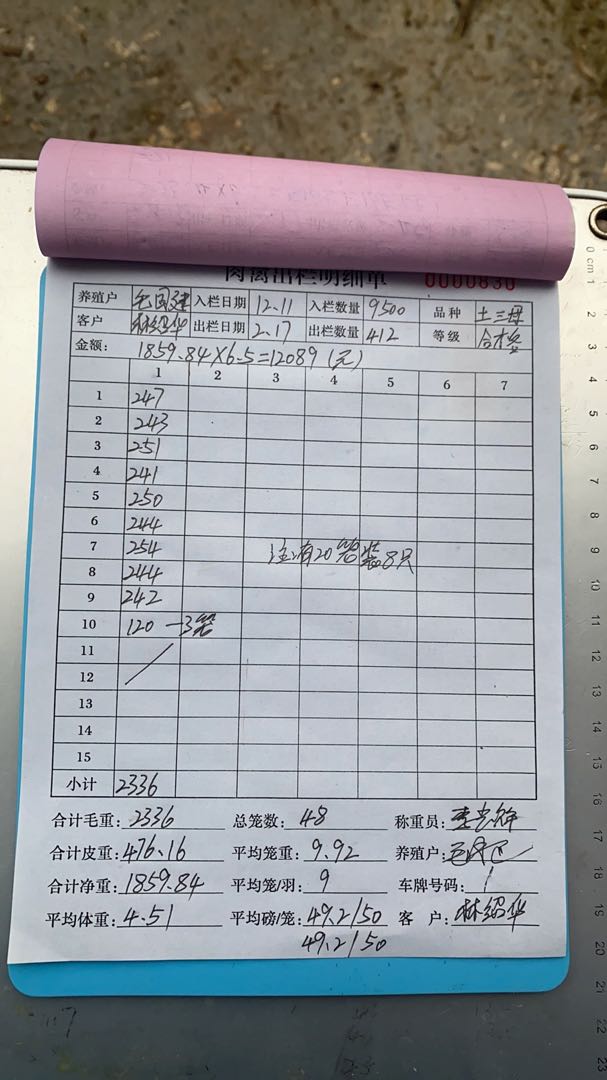 肉禽出栏明细单 0000830
养殖户 入栏日期 12.11 入栏数量 9500 品种 土三母
客户 林绍华 出栏日期 2.17 出栏数量 412 等级 合格
金额: 1859.84×6.5=12089(元)
1 2 3 4 5 6 7
1 247
2 243
3 251
4 241
5 250
6 244
7 254 注:有20笼装8只
8 244
9 242
10 120 —3笼
11
12
13
14
15
小计 2336
合计毛重: 2336 总笼数: 48 称重员:
合计皮重: 476.16 平均笼重: 9.92 养殖户:
合计净重: 1859.84 平均笼/羽: 9 车牌号码: /
平均体重: 4.51 平均磅/笼: 49.2/50 客 户: 林绍华
49.2/50
0 cm 1 2 3 4 5 6 7 8 9 10 11 12 13 14 15 16 17 18 19 20 21 22 23